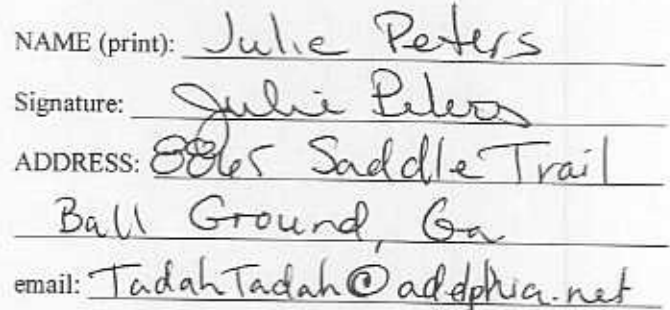 NAME (print): Julie Peters
Signature: Julie Peters
ADDRESS: 8865 Saddle Trail
Ball Ground, Ga
email: TadahTadah@adelphia.net